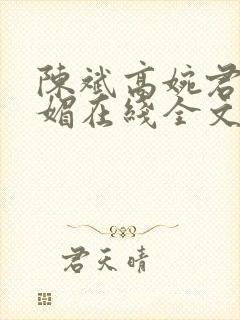 陳斌高婉君
媚在綫全文
君天晴